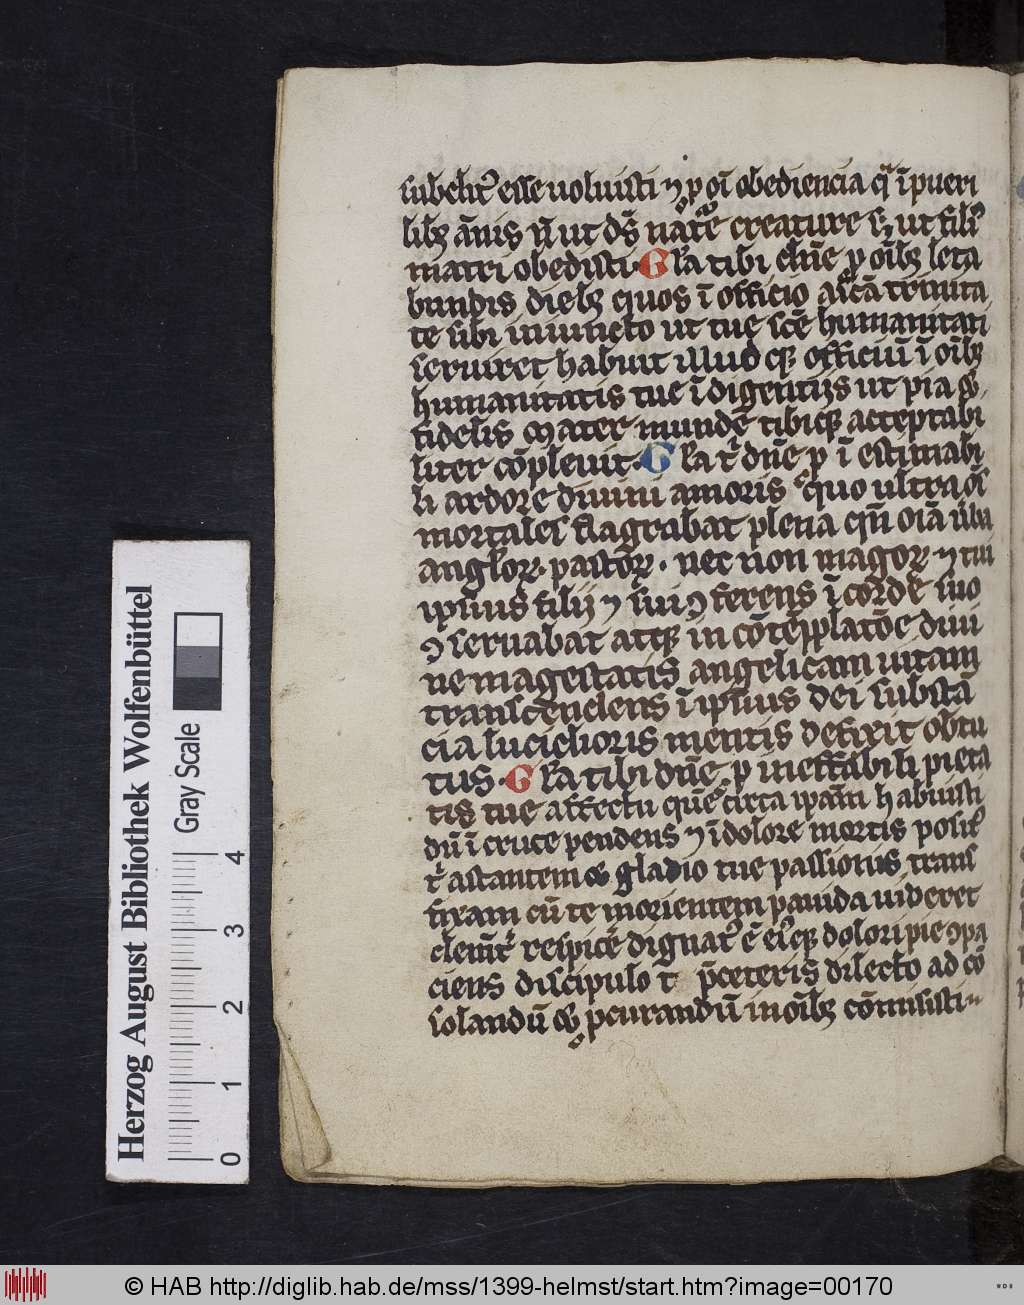 subditꝰ esse uoluisti ⁊ ꝓ oī obediencia q̄ ī pueri
libꝫ ānis nō ut dn̄s nat͛e creature sꝫ ut filiꝰ
matri obedisti. Gr̄a tibi dn̄e ꝓ oībꝫ leta
bundis diebꝫ quos ī officio a sca trinita
te sibi iniuncto ut tue sc̄e humanitati
seruiret habuit illud qꝫ officiū ī oībꝫ
humanitatis tue īdigentijs ut pia ⁊
fidelis mater munde tibiqꝫ acceptabi
liter cōpleuit. Gr̄a t̄ dn̄e ꝓ ī estimabi
li ardore diuini amoris quo ultra oēs
mortales flagrabat plena cū oīa ūba
angloꝝ. pastoꝝ. nec non magoꝝ ⁊ tui
ipsius filij ⁊ sui ꝯferens ī corde suo
ꝯseruabat atqꝫ in cōtēplatōe diui
ne magestatis angelicam uitam
transcendens ī ipsius dei substā
cia lucidioris mentis defixit obtu
tus. Gr̄a tibi dn̄e ꝓ ineffabili pieta
tis tue affectu quē circa ipam habuisti
dū ī cruce pendens ⁊ ī dolore mortis positꝰ
t̄ astantem ⁊ gladio tue passionis trans
fixam cū te morientem pauida uideret
clemt̄ respice dignatꝰ es eiꝰqꝫ dolori pie ꝯpa
ciens discipulo t̄ p̄ceteris dilecto ad cō
solandū ⁊ ꝓcurandū in oībꝫ cōmisisti
Herzog August Bibliothek Wolfenbüttel
Gray Scale
0 1 2 3 4
© HAB http://diglib.hab.de/mss/1399-helmst/start.htm?image=00170